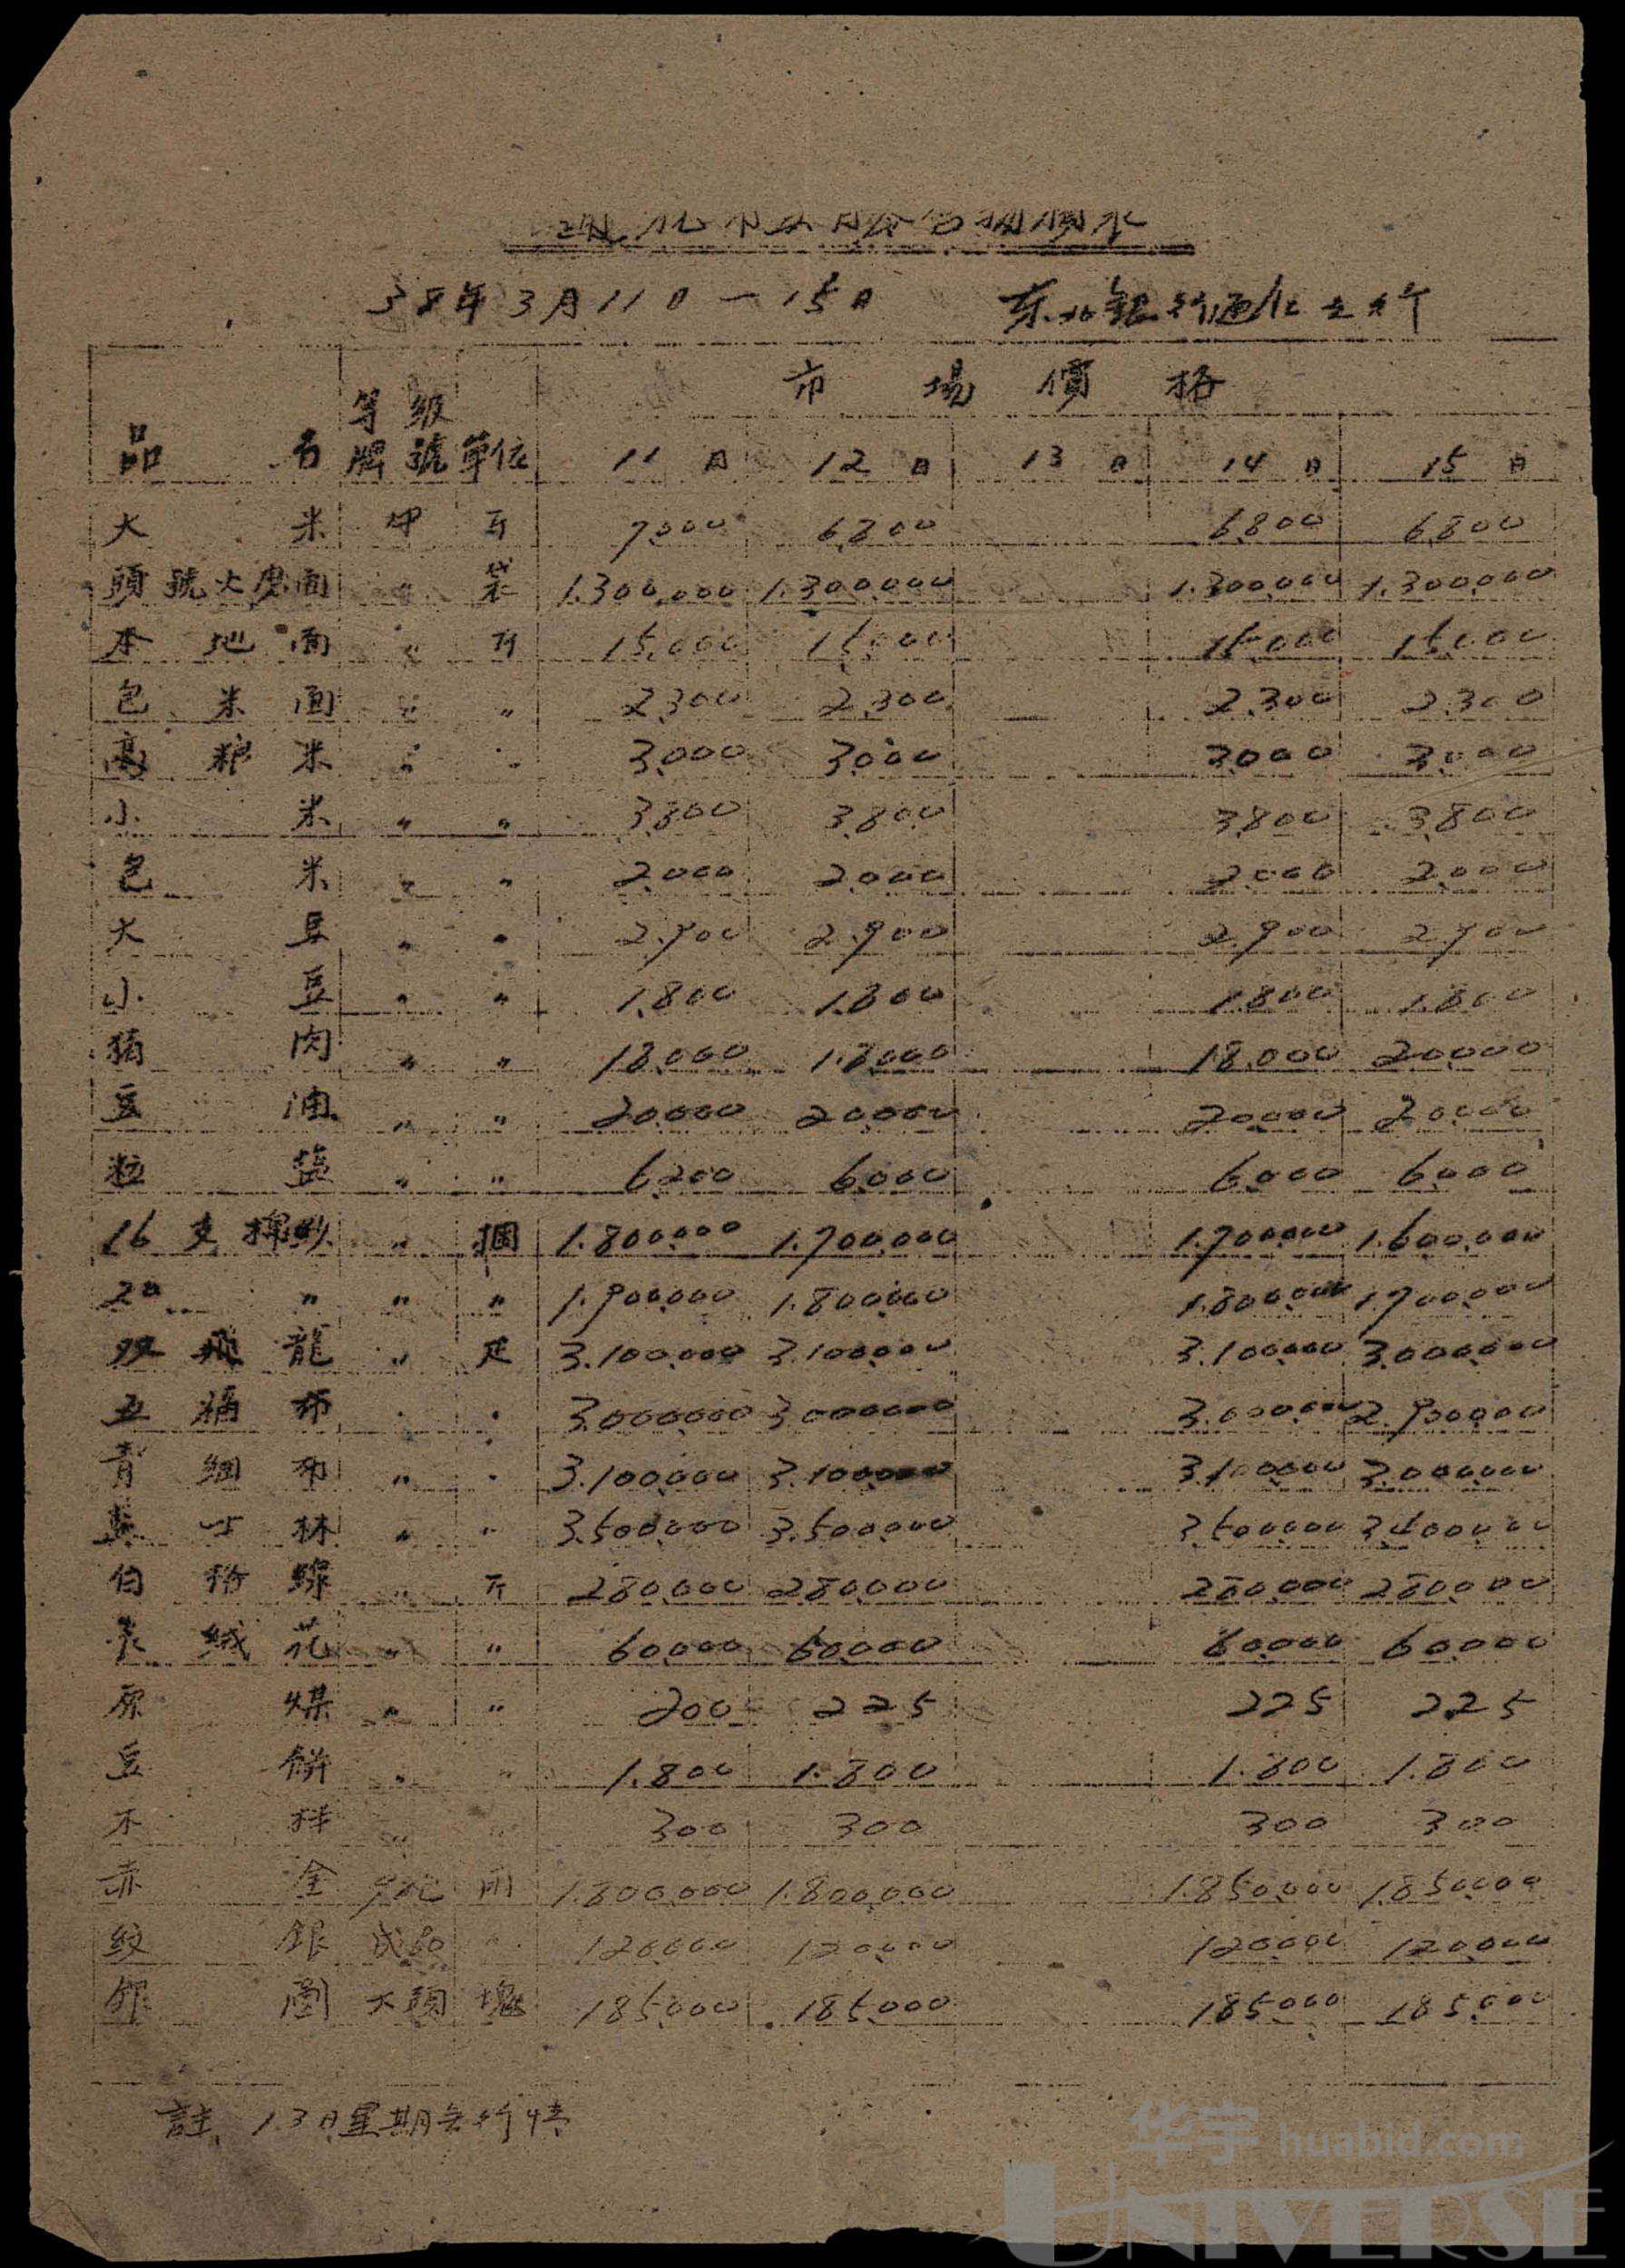 通化市五日份官物價表
38年3月11日—15日 东北銀行通化支行
品名 等級牌號 單位 市場價格
11日 12日 13日 14日 15日
大米 甲 斤 7.000 6.800 6.800 6.800
頭號火磨面 〃 袋 1.300.000 1.300.000 1.300.000 1.300.000
本地面 〃 斤 15.000 15.000 15.000 15.000
包米面 〃 〃 2.300 2.300 2.300 2.300
高粮米 〃 〃 3.000 3.000 3.000 3.000
小米 〃 〃 3.800 3.800 3.800 3.800
包米 〃 〃 2.000 2.000 2.000 2.000
大豆 〃 〃 2.900 2.900 2.900 2.900
小豆 〃 〃 1.800 1.800 1.800 1.800
猪肉 〃 〃 18.000 18.000 18.000 20.000
豆油 〃 〃 20.000 20.000 20.000 20.000
粒盐 〃 〃 6.200 6.000 6.000 6.000
16支棉紗 〃 捆 1.800.000 1.700.000 1.700.000 1.600.000
20 〃 〃 〃 1.900.000 1.800.000 1.800.000 1.700.000
双飛龍 〃 疋 3.100.000 3.100.000 3.100.000 3.000.000
五福布 〃 〃 3.000.000 3.000.000 3.000.000 2.900.000
青細布 〃 〃 3.100.000 3.100.000 3.100.000 3.000.000
士林 〃 〃 3.500.000 3.500.000 3.500.000 3.400.000
白線 〃 斤 280.000 280.000 280.000 280.000
絨花 〃 〃 60.000 60.000 60.000 60.000
原煤 〃 〃 200 225 225 225
豆餅 〃 〃 1.800 1.800 1.800 1.800
木柈 〃 〃 300 300 300 300
赤金 兩 1.800.000 1.800.000 1.850.000 1.850.000
紋銀 成品 〃 120.000 120.000 120.000 120.000
銀圓 大頭 塊 185.000 185.000 185.000 185.000
註、13日星期无行情
华宇 huabid.com
UNIVERSE